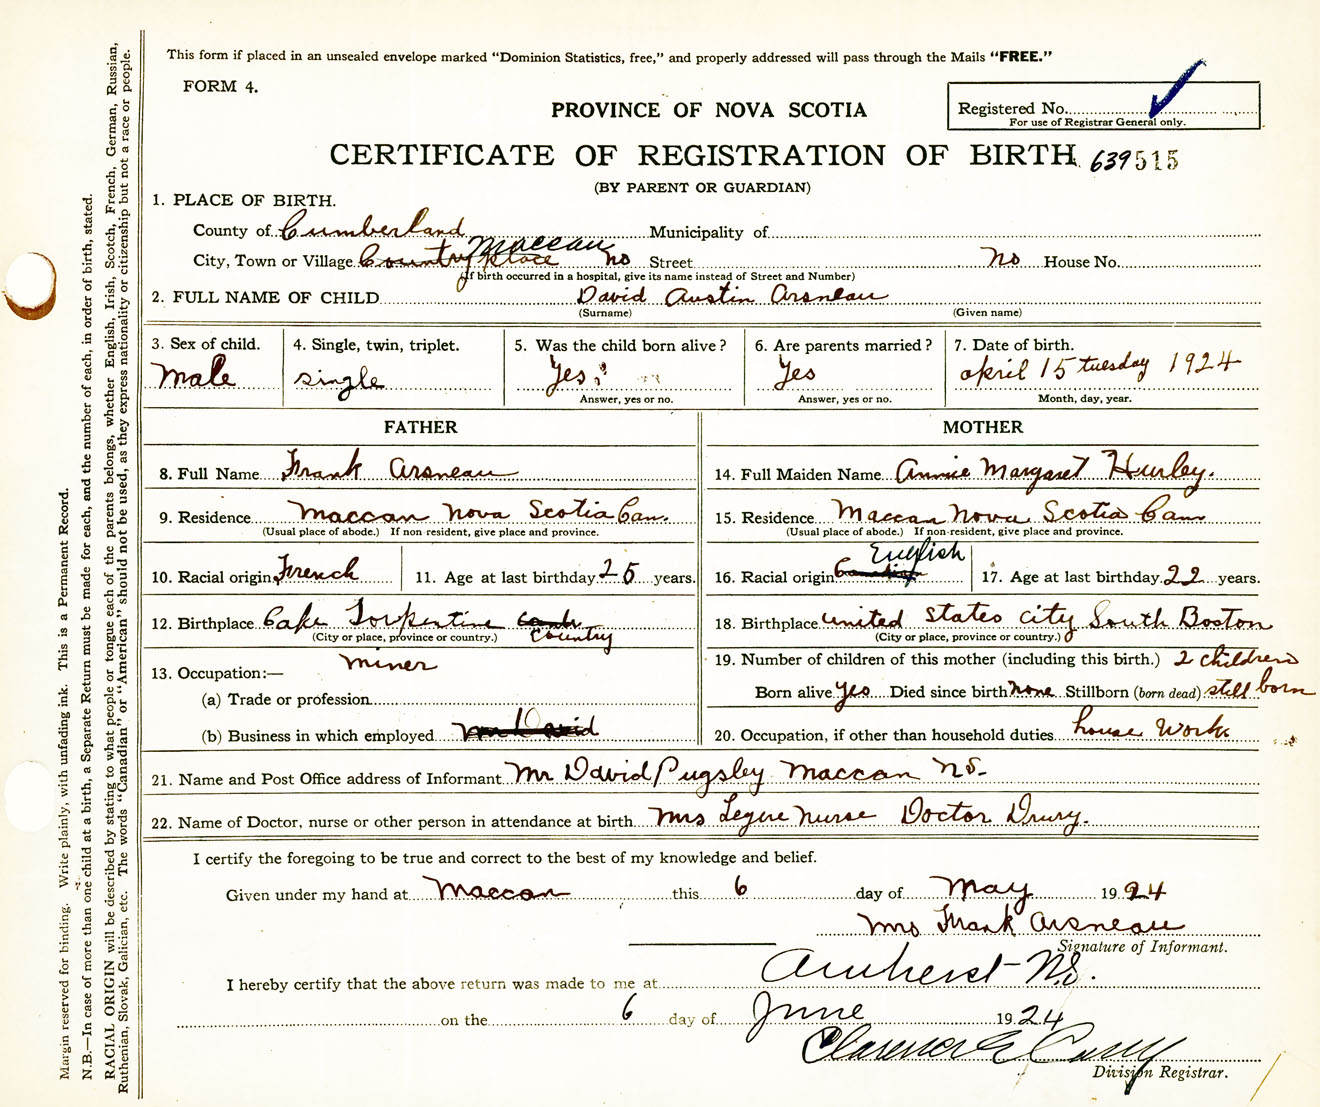 This form if placed in an unsealed envelope marked "Dominion Statistics, free," and properly addressed will pass through the Mails "FREE."
FORM 4.
PROVINCE OF NOVA SCOTIA
Registered No.
For use of Registrar General only.
CERTIFICATE OF REGISTRATION OF BIRTH 639515
(BY PARENT OR GUARDIAN)
1. PLACE OF BIRTH.
County of Cumberland Municipality of
Maccan
City, Town or Village Country place no Street no House No.
(If birth occurred in a hospital, give its name instead of Street and Number)
2. FULL NAME OF CHILD David Austin Arsneau
(Surname) (Given name)
3. Sex of child. 4. Single, twin, triplet. 5. Was the child born alive? 6. Are parents married? 7. Date of birth.
Male single Yes Yes april 15 tuesday 1924
Answer, yes or no. Answer, yes or no. Month, day, year.
FATHER MOTHER
8. Full Name Frank Arsneau 14. Full Maiden Name Annie Margaret Hurley.
9. Residence Maccan Nova Scotia Can. 15. Residence Maccan Nova Scotia Can
(Usual place of abode.) If non-resident, give place and province. (Usual place of abode.) If non-resident, give place and province.
English
10. Racial origin French 11. Age at last birthday 25 years. 16. Racial origin 17. Age at last birthday 22 years.
12. Birthplace Cake Torpentine 18. Birthplace united States city South Boston
(City or place, province or country.) Country (City or place, province or country.)
miner
13. Occupation:— 19. Number of children of this mother (including this birth.) 2 children
(a) Trade or profession Born alive yes Died since birth none Stillborn (born dead) still born
(b) Business in which employed 20. Occupation, if other than household duties house Work
21. Name and Post Office address of Informant Mr David Pugsley Maccan NS.
22. Name of Doctor, nurse or other person in attendance at birth Mrs Legere Nurse Doctor Drury.
I certify the foregoing to be true and correct to the best of my knowledge and belief.
Given under my hand at Maccan this 6 day of May 1924
Mrs Frank Arsneau
Signature of Informant.
I hereby certify that the above return was made to me at Amherst N.S.
on the 6 day of June 1924
Clarence E
Division Registrar.
Margin reserved for binding. Write plainly, with unfading ink. This is a Permanent Record.
N.B.—In case of more than one child at a birth, a Separate Return must be made for each, and the number of each, in order of birth, stated.
RACIAL ORIGIN will be described by stating to what people or tongue each of the parents belongs, whether English, Irish, Scotch, French, German, Russian,
Ruthenian, Slovak, Galician, etc. The words "Canadian" or "American" should not be used, as they express nationality or citizenship but not a race or people.